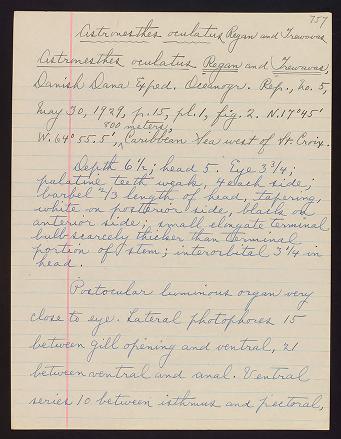 757
Astronesthes oculatus Regan and Trewavas
Astronesthes oculatus Regan and Trewavas,
Danish Dana Exped. Oceanogr. Rep., no. 5,
May 30, 1929, p. 15, pl. 1, fig. 2. N. 17° 45'
800 meters,
W. 64° 55.5', Caribbean Sea west of St. Croix.
Depth 6 1/2; head 5. Eye 3 3/4;
palatine teeth weak, 4 each side;
barbel 2/3 length of head, tapering,
white on posterior side, black on
anterior side; small elongate terminal
bulb scarcely thicker than terminal
portion of stem; interorbital 3 1/4 in
head.
Postocular luminous organ very
close to eye. Lateral photophores 15
between gill opening and ventral, 21
between ventral and anal. Ventral
series 10 between isthmus and pectoral,